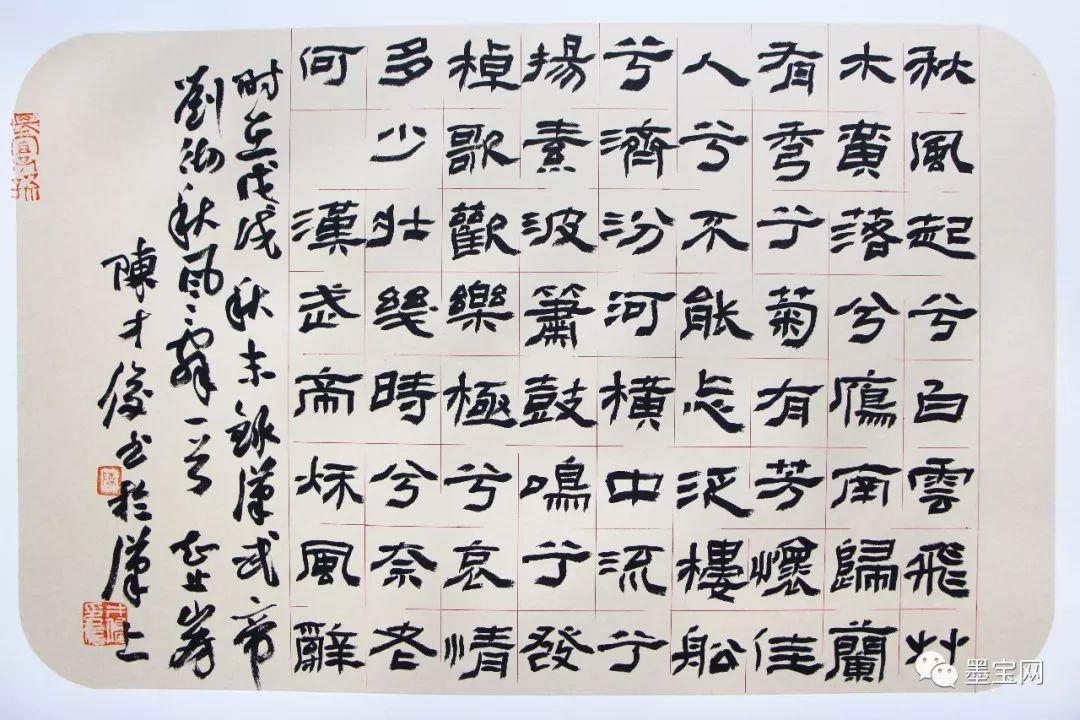 秋風起兮白雲飛艸
木黄落兮鴈南歸蘭
有秀兮菊有芳懷佳
人兮不能忘泛樓船
兮濟汾河橫中流兮
揚素波簫鼓鳴兮發
棹歌歡樂極兮哀情
多少壯幾時兮奈老
何 漢武帝秋風辭
时在戊戌秋末錄漢武帝
劉徹秋风辭一首
陳才俊书於漢上
墨宝网